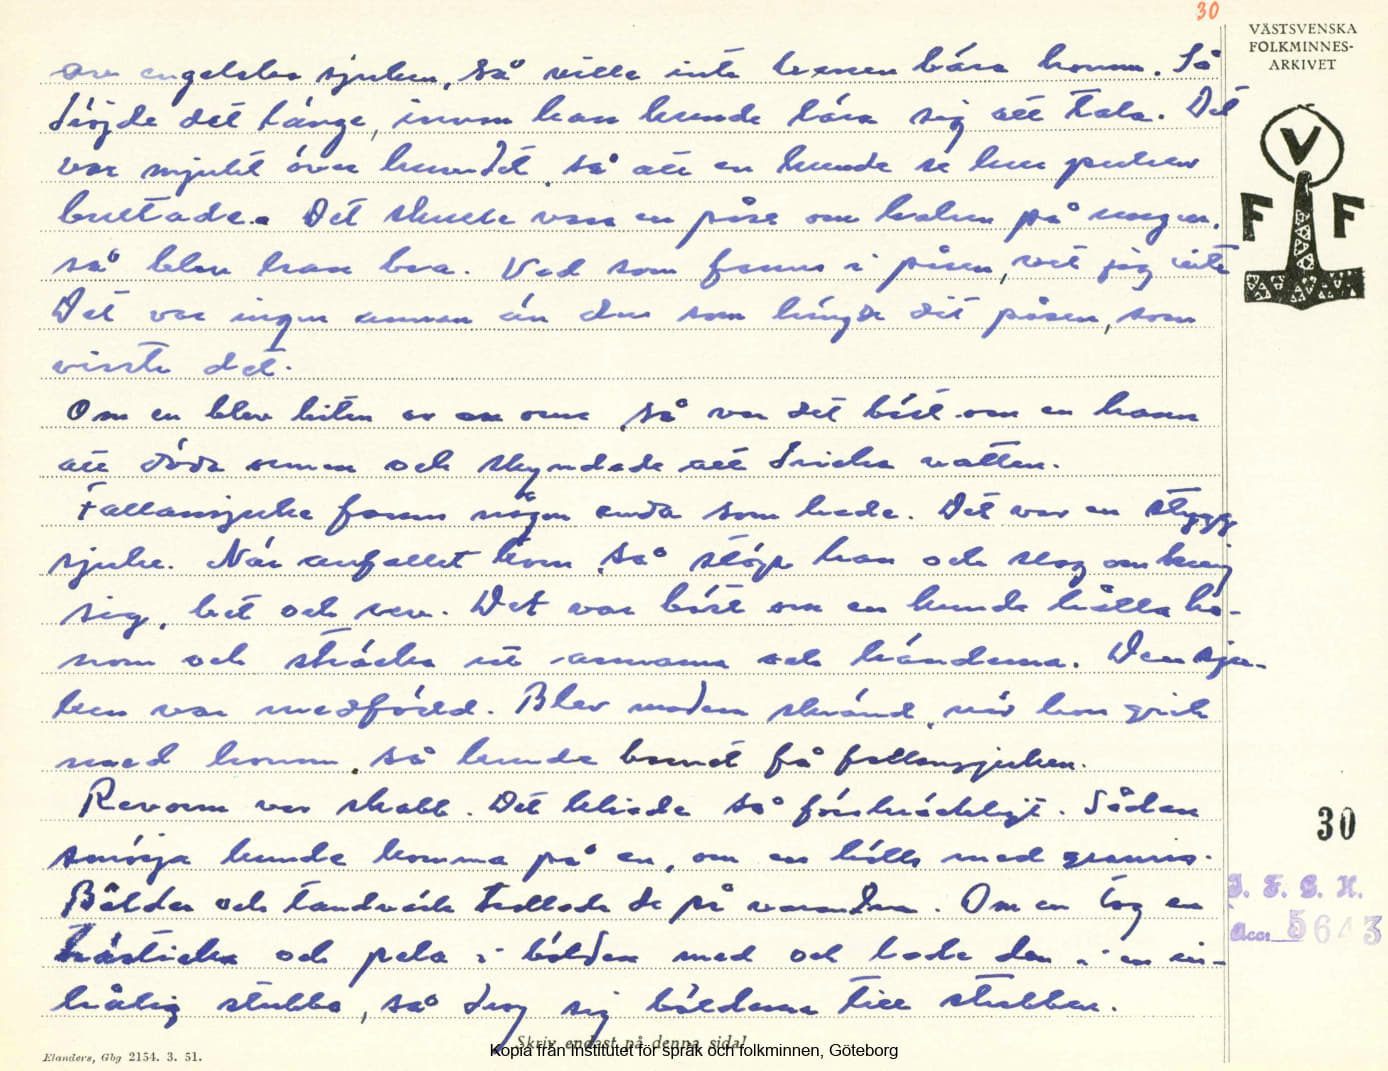 30
VÄSTSVENSKA
FOLKMINNES-
ARKIVET
V
F F
av engelska sjukan, så ville inte benen bära honom. Så
dröjde det länge, innan han kunde lära sig att tala. Det
var mjukt över huvudet, så att en kunde se hur pulsen
bultade. Det skulle vara en påse om halsen på ungen,
så blev han bra. Vad som fanns i påsen, vet jag inte
Det var ingen annan än den som hängde dit påsen, som
visste det.
Om en blev biten av en orm, så var det bäst om en hann
att döda ormen och skyndade att dricka vatten.
Fallansjuka fanns någon enda som hade. Det var en stygg
sjuka. När anfallet kom, så stöp han och slog omkring
sig, bet och rev. Det var bäst om en kunde hålla ho-
nom och sträcka ut armarna och händerna. Den sju-
kan var medfödd. Blev modern skrämd, när hon gick
med honom, så kunde barnet få fallansjukan.
Revorm var skabb. Det kliade så förskräckligt. Sådan
smörja kunde komma på en, om en hölls med grannas.
Bölder och tandvärk trollade de på varandra. Om en tog en
trästicka och peta i bölden med och lade den i en in-
hålig stubbe, så drog sig bölderna till stubben.
30
I. F. G. H.
Acc. 5643
Skriv endast på denna sida!
Elanders, Gbg 2154. 3. 51.
Kopia från Institutet för språk och folkminnen, Göteborg